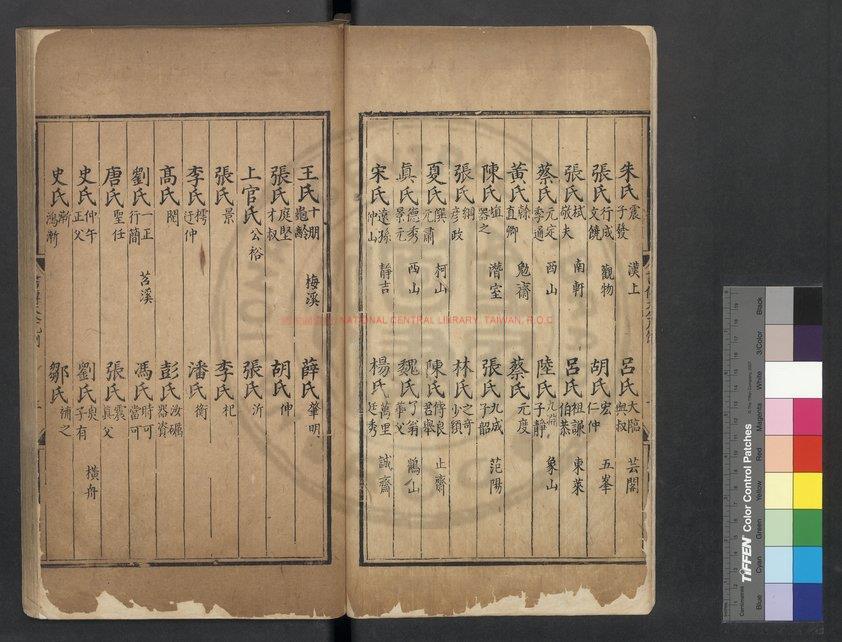 朱氏震子發 漢上 呂氏大臨與叔 芸閣
張氏行成文饒 觀物 胡氏宏仁仲 五峯
張氏栻敬夫 南軒 呂氏祖謙伯恭 東萊
蔡氏元定季通 西山 陸氏九淵子靜 象山
黃氏榦直卿 勉齋 蔡氏元度
陳氏埴器之 潛室 張氏九成子韶 范陽
張氏綱彦政 林氏之奇少穎
夏氏僎元肅 柯山 陳氏傅良君舉 止齋
真氏德秀景元 西山 魏氏了翁華父 鶴山
宋氏遠孫仲山 靜吉 楊氏萬里廷秀 誠齋
王氏十朋龜齡 梅溪 薛氏肇明
張氏庭堅才叔 胡氏伸
上官氏公裕 張氏沂
張氏景 李氏杞
李氏樗迂仲 潘氏衡
高氏閌 彭氏汝礪器資
劉氏一正行簡 苕溪 馮氏時可當可
唐氏聖任 張氏震真父
史氏仲午正父 劉氏奭子有 橫舟
史氏漸鴻漸 鄒氏補之
NATIONAL CENTRAL LIBRARY, TAIWAN, R.O.C
TIFFEN Color Control Patches
Blue Cyan Green Yellow Red Magenta White 3/Color Black